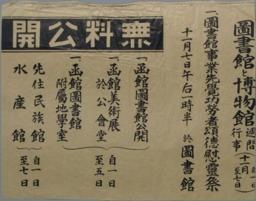 圖書館と博物館週間行事
一圖書館事業先覺功勞者頌德慰靈祭
十一月七日午后一時半 於圖書館
無料公開
一函館圖書館公開
一函館美術展 於公會堂
一函館圖書館附屬地學室
先住民族館
水産館
自一日至五日
自一日至七日